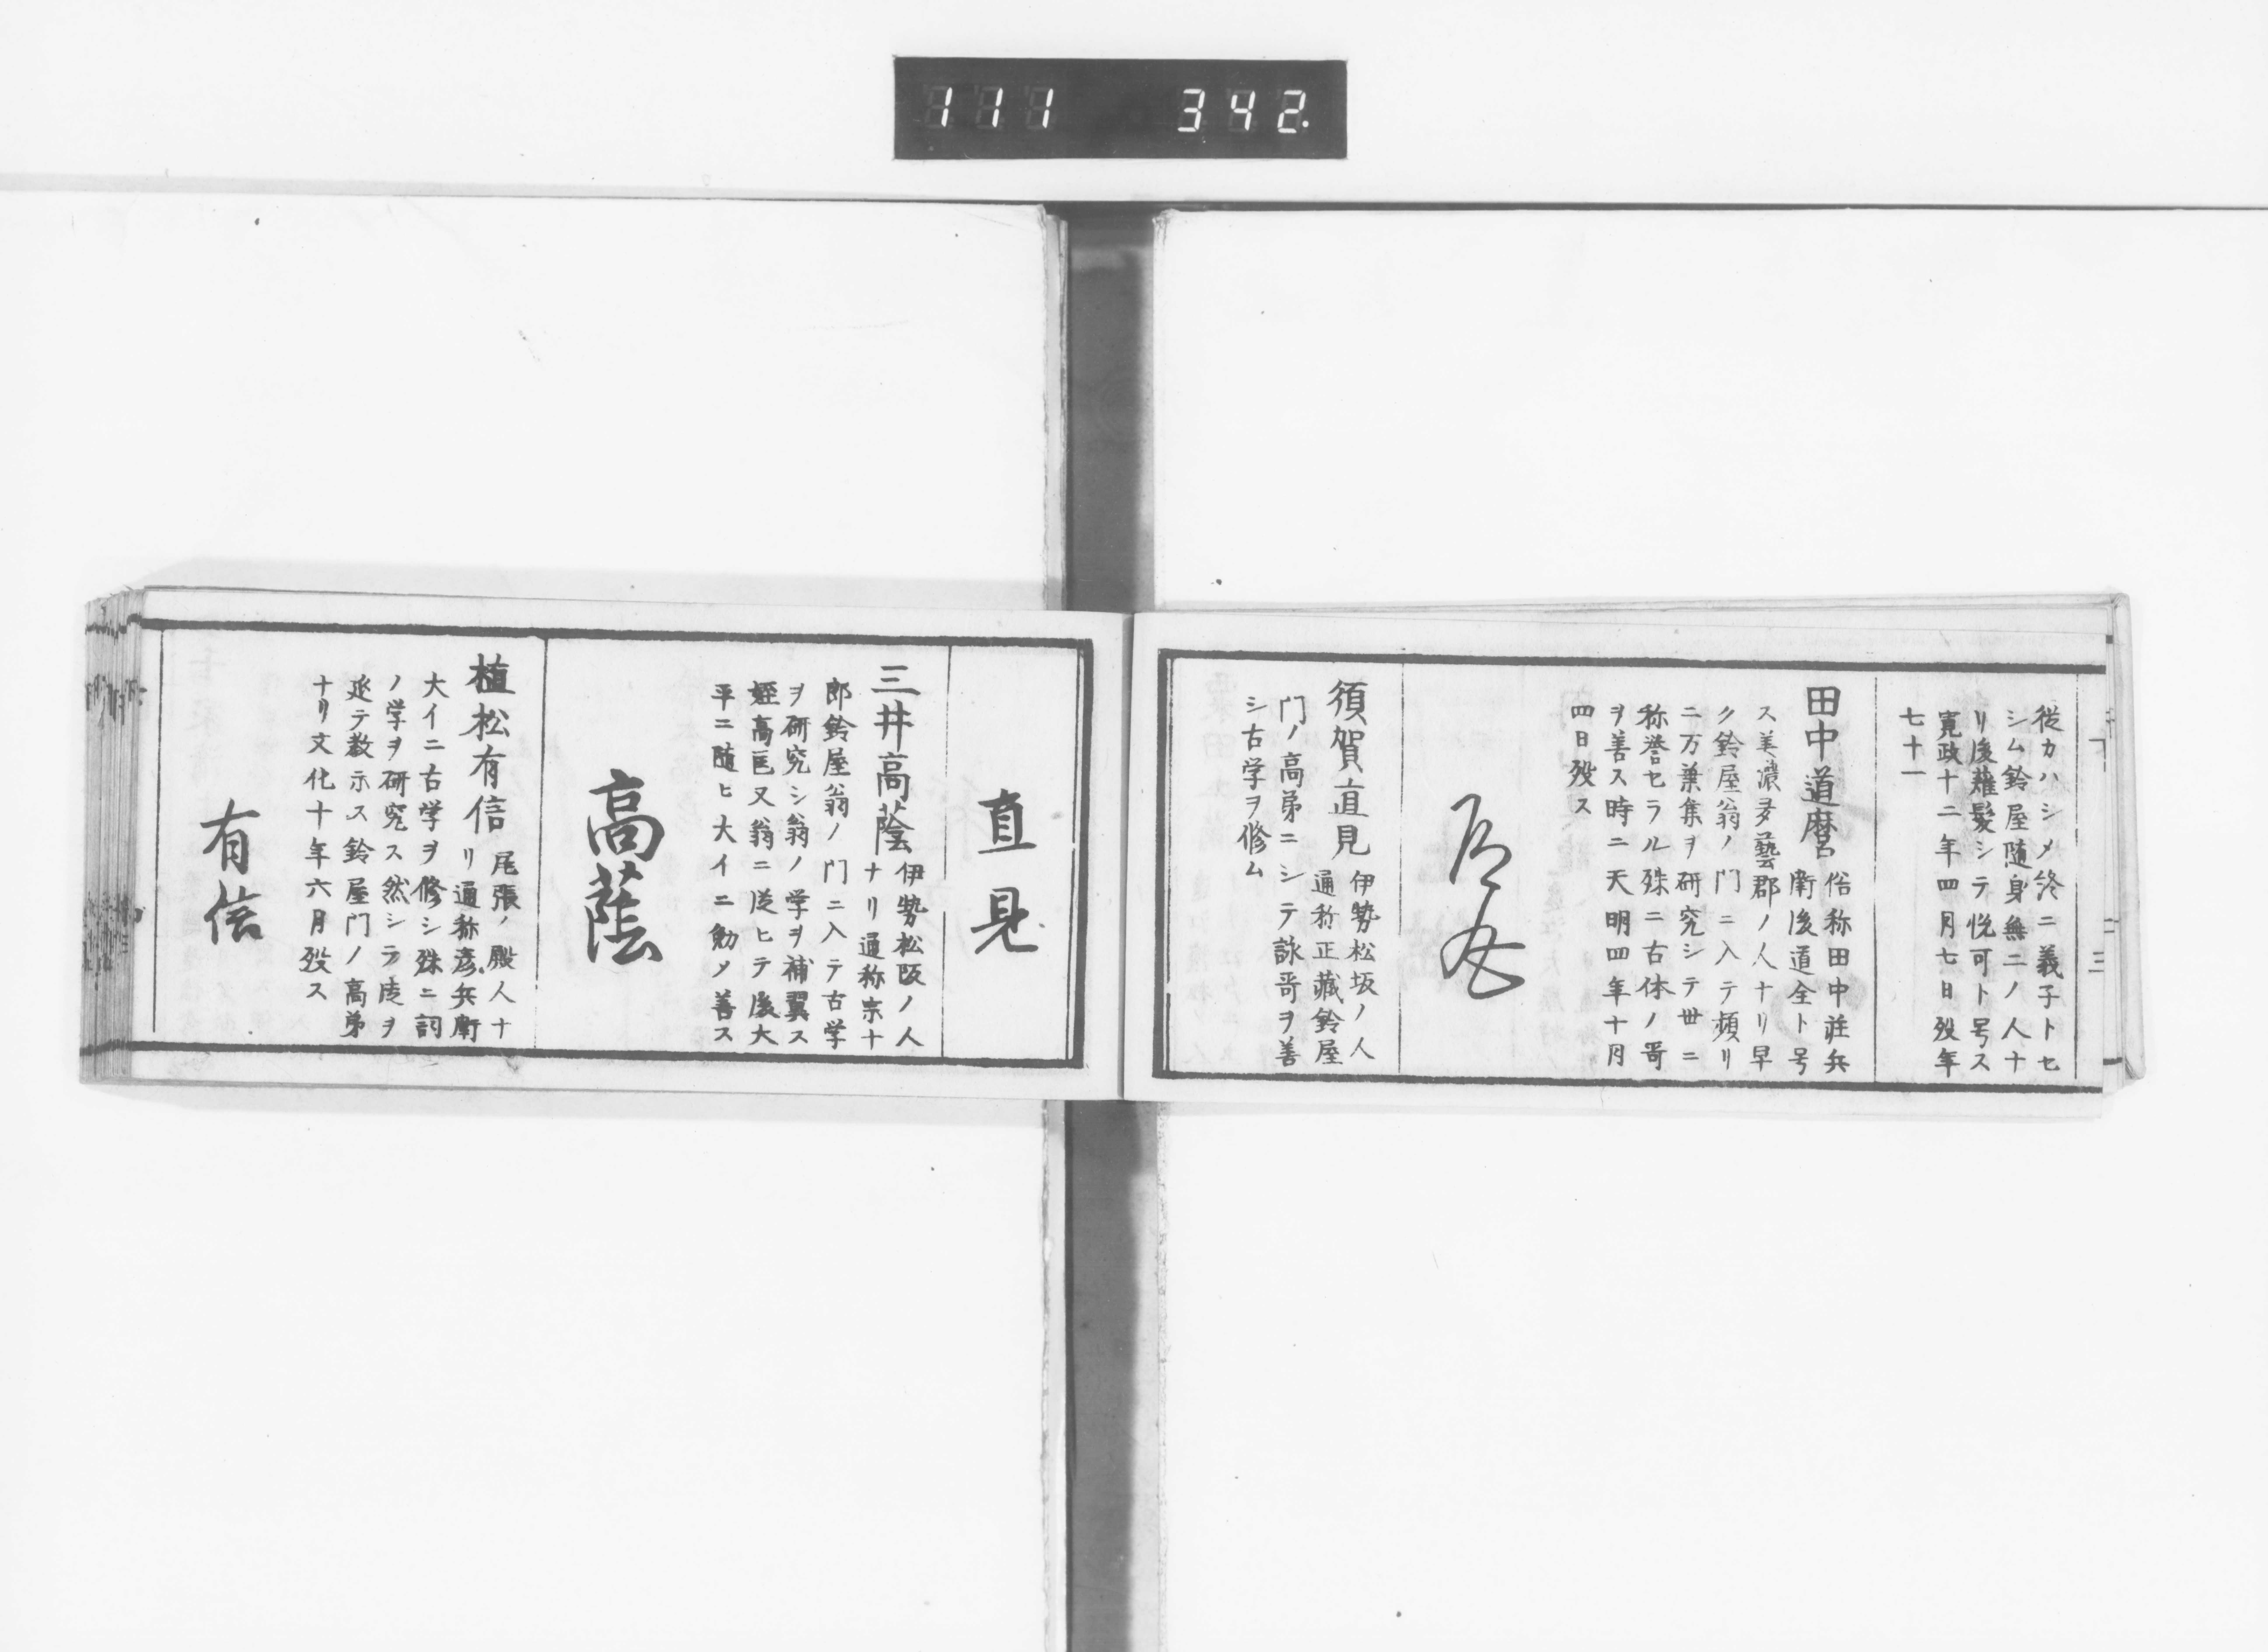 111 342.
従カハシメ終ニ義子トセ
シム鈴屋随身無二ノ人ナ
リ後薙髪シテ悦可ト号ス
寛政十二年四月七日歿年
七十一
田中道麿 俗称田中荘兵
衛後道全ト号
ス美濃多藝郡ノ人ナリ早
ク鈴屋翁ノ門ニ入テ頻リ
ニ万葉集ヲ研究シテ世ニ
称誉セラル殊ニ古体ノ哥
ヲ善ス時ニ天明四年十月
四日歿ス
須賀直見 伊勢松坂ノ人
通称正藏鈴屋
門ノ高弟ニシテ詠哥ヲ善
シ古学ヲ修ム
直見
三井高蔭 伊勢松阪ノ人
ナリ通称宗十
郎鈴屋翁ノ門ニ入テ古学
ヲ研究シ翁ノ学ヲ補翼ス
姪高匡又翁ニ従ヒテ後大
平ニ随ヒ大イニ勉メ善ス
高蔭
植松有信 尾張ノ殿人ナ
リ通称彦兵衛
大イニ古学ヲ修シ殊ニ詞
ノ学ヲ研究ス然シテ徒ヲ
延テ教示ス鈴屋門ノ高弟
ナリ文化十年六月歿ス
有信